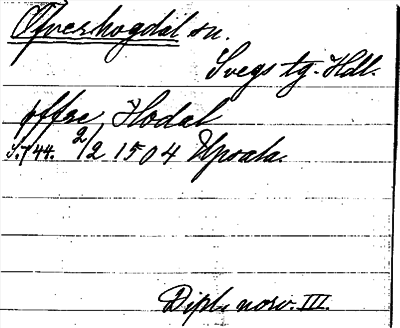 Öfverhogdal sn.
Svegs tg. Hdl.
öffre Hodal
S. 744. 2/2 1504 Upsala.
Dipl. norv. III.